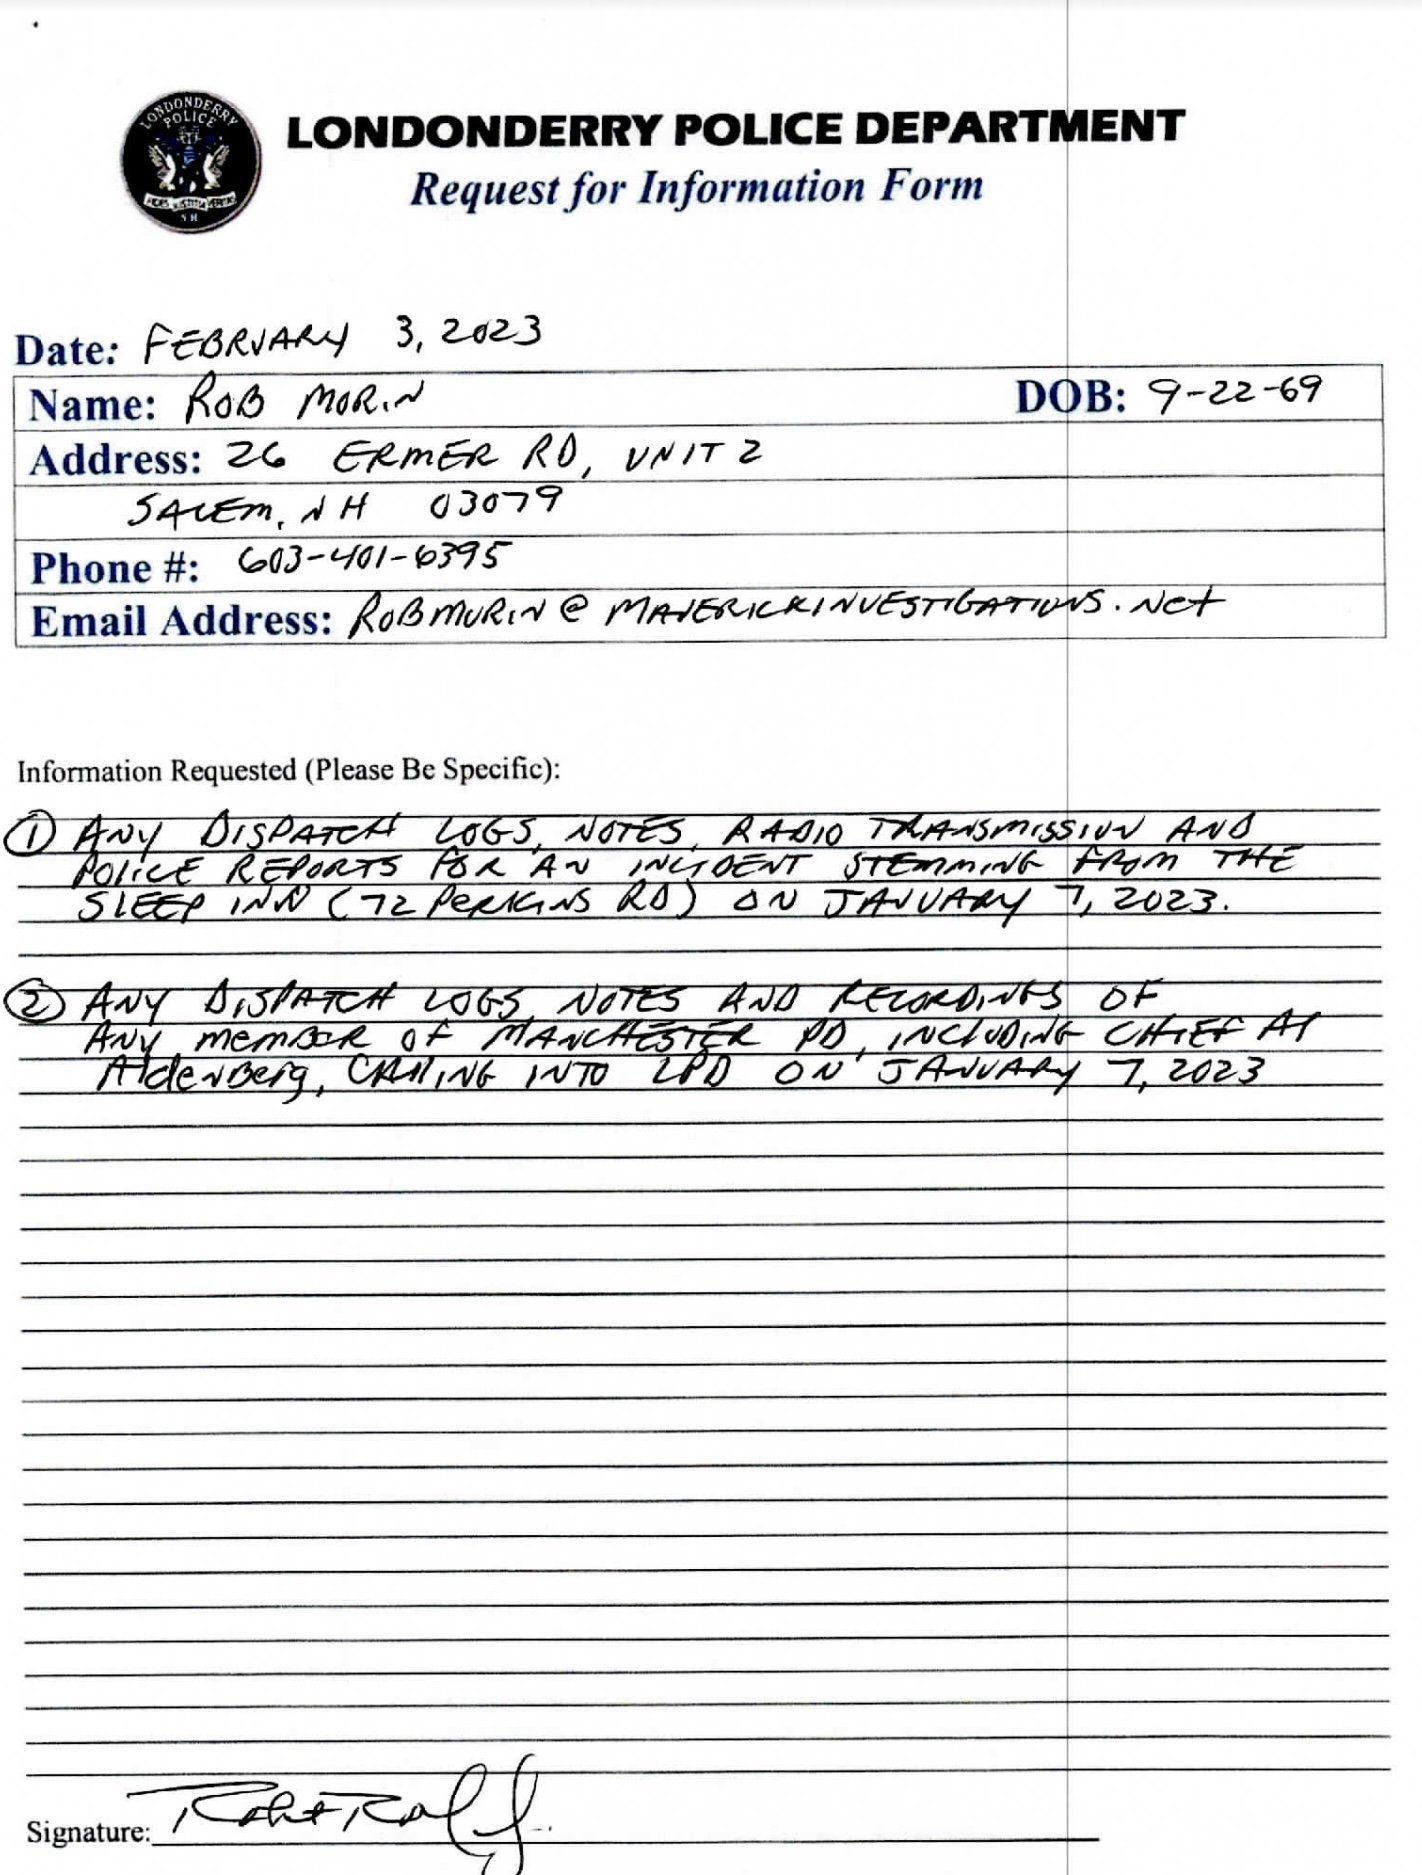 LONDONDERRY
POLICE
NH
LONDONDERRY POLICE DEPARTMENT
Request for Information Form
Date: FEBRUARY 3, 2023
Name: ROB MORIN DOB: 9-22-69
Address: 26 ERMER RD, UNIT 2
SALEM, NH 03079
Phone #: 603-401-6395
Email Address: ROBMORIN@MAVERICKINVESTIGATIONS.Net
Information Requested (Please Be Specific):
① ANY DISPATCH LOGS, NOTES, RADIO TRANSMISSION AND
POLICE REPORTS FOR AN INCIDENT STEMMING FROM THE
SLEEP INN (72 PERKINS RD) ON JANUARY 7, 2023.
② ANY DISPATCH LOGS, NOTES AND RECORDINGS OF
ANY MEMBER OF MANCHESTER PD, INCLUDING CHIEF Al
Aldenberg, CALLING INTO LPD ON JANUARY 7, 2023
Signature: